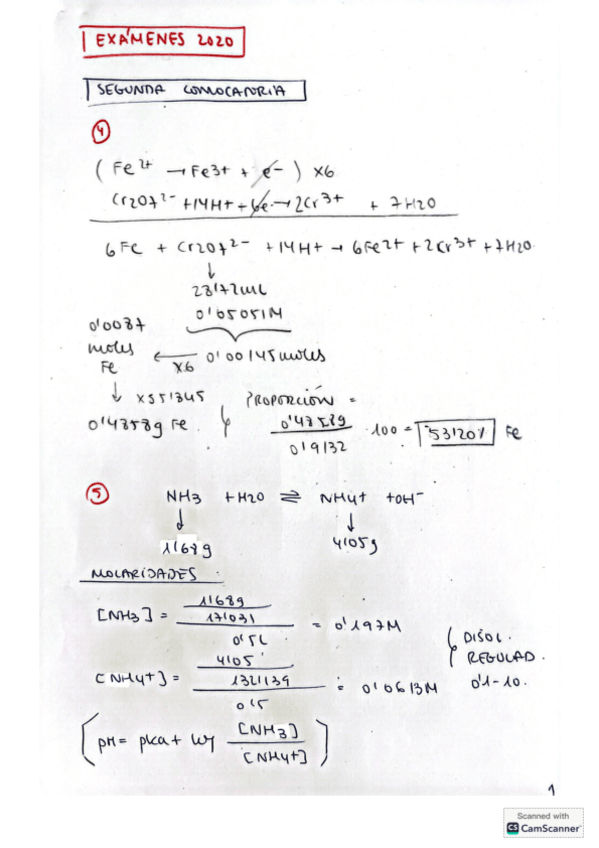 EXÁMENES 2020
SEGUNDA CONVOCATORIA
4
(Fe2+ → Fe3+ + e-) x6
Cr2O7 2- + 14H+ + 6e- → 2Cr3+ + 7H2O
6Fe + Cr2O7 2- + 14H+ → 6Fe2+ + 2Cr3+ + 7H2O
↓
28'72mL
0'05051M
0'0087
moles
Fe
← x6
0'00145moles
↓ x55'845
0'4858g Fe.
PROPORCIÓN =
0'4858g
0'9132
·100 = 53'20% Fe
5
NH3 + H2O ⇌ NH4+ + OH-
↓ ↓
1'68g 4'05g
MOLARIDADES
[NH3] = 1'689 / 17'031 / 0'5L = 0'197M
[NH4+] = 4'05 / 132'139 / 0'5 = 0'0613M
DISOL.
REGULAD.
0'1-10.
(pH = pka + log [NH3] / [NH4+])
1
Scanned with
CS CamScanner